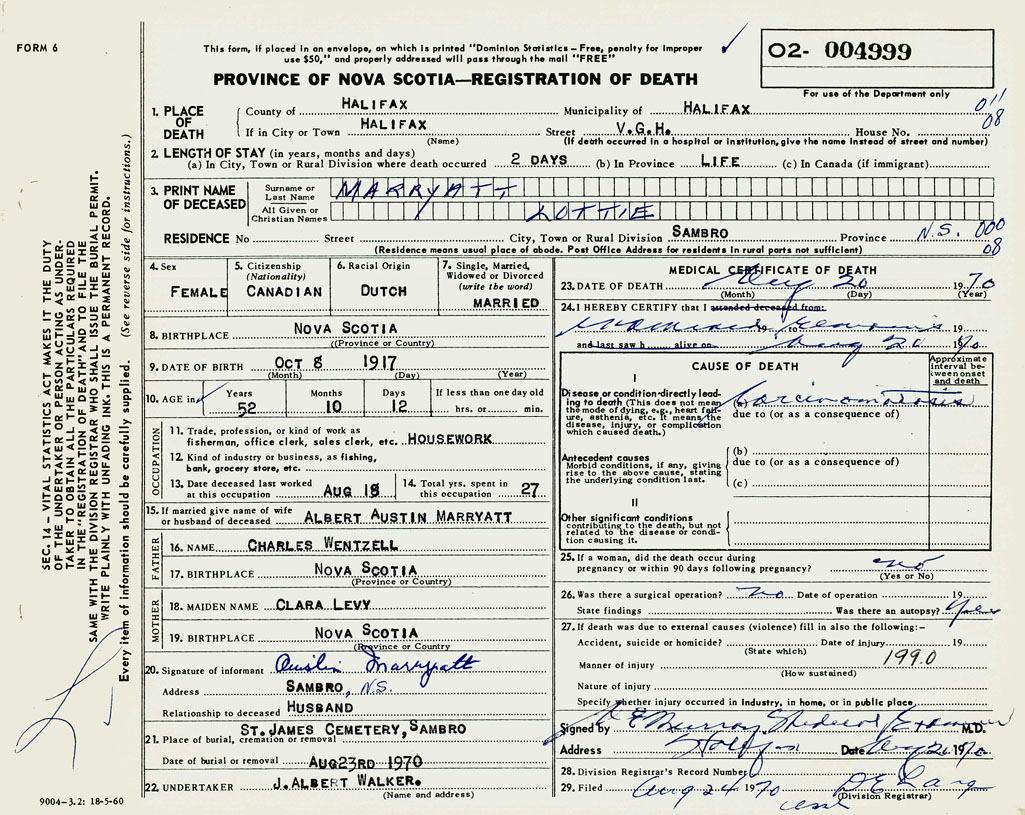 FORM 6
This form, if placed in an envelope, on which is printed "Dominion Statistics – Free, penalty for improper
use $50," and properly addressed will pass through the mail "FREE"
PROVINCE OF NOVA SCOTIA—REGISTRATION OF DEATH
O2- 004999
For use of the Department only
011
08
1. PLACE OF DEATH
County of HALIFAX Municipality of HALIFAX
If in City or Town HALIFAX Street V.G.H. House No.
(Name) (If death occurred in a hospital or institution, give the name instead of street and number)
2. LENGTH OF STAY (in years, months and days)
(a) In City, Town or Rural Division where death occurred 2 DAYS (b) In Province LIFE (c) In Canada (if immigrant)
3. PRINT NAME OF DECEASED
Surname or Last Name MARRYATT
All Given or Christian Names LOTTIE
RESIDENCE No Street City, Town or Rural Division SAMBRO Province N.S. 000
08
(Residence means usual place of abode. Post Office Address for residents in rural parts not sufficient)
4. Sex FEMALE
5. Citizenship (Nationality) CANADIAN
6. Racial Origin DUTCH
7. Single, Married, Widowed or Divorced (write the word) MARRIED
8. BIRTHPLACE NOVA SCOTIA
(Province or Country)
9. DATE OF BIRTH OCT 8 1917
(Month) (Day) (Year)
10. AGE in Years 52 Months 10 Days 12 If less than one day old hrs. or min.
OCCUPATION
11. Trade, profession, or kind of work as
fisherman, office clerk, sales clerk, etc. HOUSEWORK
12. Kind of industry or business, as fishing,
bank, grocery store, etc.
13. Date deceased last worked
at this occupation AUG 18
14. Total yrs. spent in
this occupation 27
15. If married give name of wife
or husband of deceased ALBERT AUSTIN MARRYATT
FATHER
16. NAME CHARLES WENTZELL
17. BIRTHPLACE NOVA SCOTIA
(Province or Country)
MOTHER
18. MAIDEN NAME CLARA LEVY
19. BIRTHPLACE NOVA SCOTIA
(Province or Country)
20. Signature of informant Austin Marryatt
Address SAMBRO, N.S.
Relationship to deceased HUSBAND
ST. JAMES CEMETERY, SAMBRO
21. Place of burial, cremation or removal
Date of burial or removal AUG 23RD 1970
22. UNDERTAKER J. ALBERT WALKER.
(Name and address)
9004–3.2: 18-5-60
MEDICAL CERTIFICATE OF DEATH
23. DATE OF DEATH Aug 20 1970
(Month) (Day) (Year)
24. I HEREBY CERTIFY that I attended deceased from:
19 to 19
and last saw h alive on Aug 20 1970
CAUSE OF DEATH
Approximate interval between onset and death
I
Disease or condition directly leading to death (This does not mean the mode of dying, e.g., heart failure, asthenia, etc. It means the disease, injury, or complication which caused death.)
Carcinomatosis
due to (or as a consequence of)
Antecedent causes
Morbid conditions, if any, giving rise to the above cause, stating the underlying condition last.
(b)
due to (or as a consequence of)
(c)
II
Other significant conditions
contributing to the death, but not related to the disease or condition causing it.
25. If a woman, did the death occur during
pregnancy or within 90 days following pregnancy? no
(Yes or No)
26. Was there a surgical operation? no Date of operation 19
State findings Was there an autopsy?
27. If death was due to external causes (violence) fill in also the following:–
Accident, suicide or homicide? Date of injury 19
(State which)
199.0
Manner of injury
(How sustained)
Nature of injury
Specify whether injury occurred in industry, in home, or in public place
Signed by Murray Medical Examiner M.D.
Address Halifax Date Aug 21 1970
28. Division Registrar's Record Number
29. Filed Aug 24 1970
(Division Registrar)
SEC. 14 – VITAL STATISTICS ACT MAKES IT THE DUTY
OF THE UNDERTAKER OR PERSON ACTING AS UNDER-
TAKER TO OBTAIN ALL THE PARTICULARS REQUIRED
IN THE "REGISTRATION OF DEATH" AND TO FILE THE
SAME WITH THE DIVISION REGISTRAR WHO SHALL ISSUE THE BURIAL PERMIT.
WRITE PLAINLY WITH UNFADING INK. THIS IS A PERMANENT RECORD.
Every item of information should be carefully supplied. (See reverse side for instructions.)